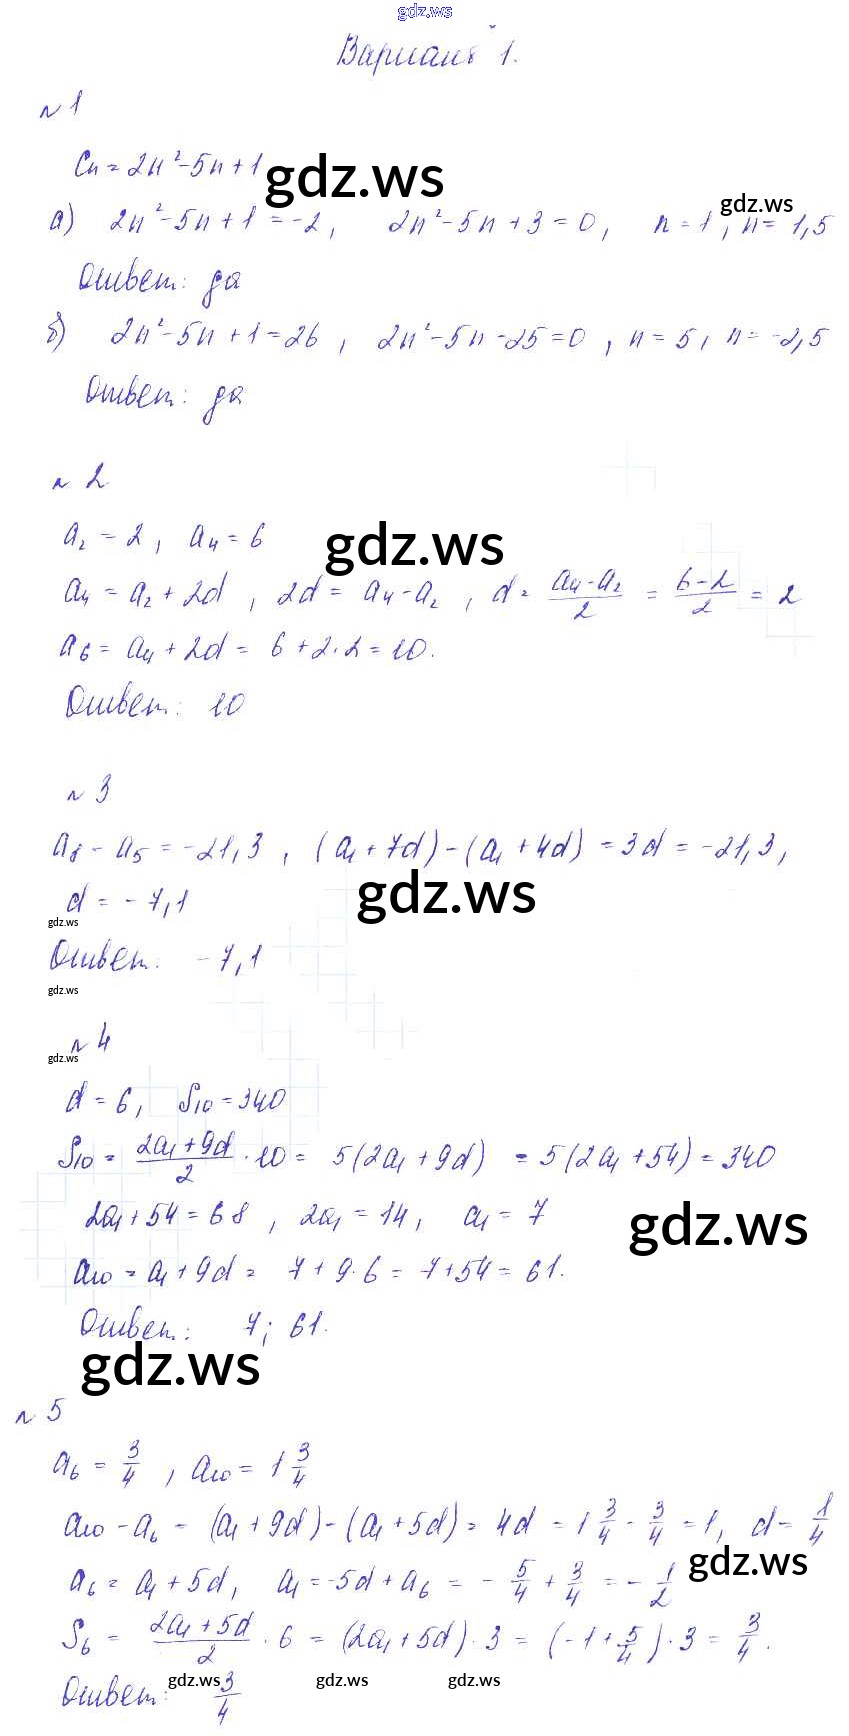 gdz.ws
Вариант 1.
№ 1
Cn = 2n² - 5n + 1
gdz.ws
gdz.ws
а) 2n² - 5n + 1 = -2, 2n² - 5n + 3 = 0, n = 1, n = 1,5
Ответ: да
б) 2n² - 5n + 1 = 26, 2n² - 5n - 25 = 0, n = 5, n = -2,5
Ответ: да
№ 2
a₂ = 2, a₄ = 6
gdz.ws
a₄ = a₂ + 2d, 2d = a₄ - a₂, d = (a₄ - a₂)/2 = (6 - 2)/2 = 2
a₆ = a₄ + 2d = 6 + 2·2 = 10.
Ответ: 10
№ 3
a₈ - a₅ = -21,3, (a₁ + 7d) - (a₁ + 4d) = 3d = -21,3,
d = -7,1
gdz.ws
gdz.ws
Ответ: -7,1
gdz.ws
№ 4
gdz.ws
d = 6, S₁₀ = 340
S₁₀ = (2a₁ + 9d)/2 · 10 = 5(2a₁ + 9d) = 5(2a₁ + 54) = 340
2a₁ + 54 = 68, 2a₁ = 14, a₁ = 7
gdz.ws
a₁₀ = a₁ + 9d = 7 + 9·6 = 7 + 54 = 61.
Ответ: 7; 61.
gdz.ws
№ 5
a₆ = 3/4, a₁₀ = 1 3/4
a₁₀ - a₆ = (a₁ + 9d) - (a₁ + 5d) = 4d = 1 3/4 - 3/4 = 1, d = 1/4
gdz.ws
a₆ = a₁ + 5d, a₁ = -5d + a₆ = - 5/4 + 3/4 = - 1/2
S₆ = (2a₁ + 5d)/2 · 6 = (2a₁ + 5d) · 3 = (-1 + 5/4) · 3 = 3/4.
gdz.ws gdz.ws gdz.ws
Ответ: 3/4